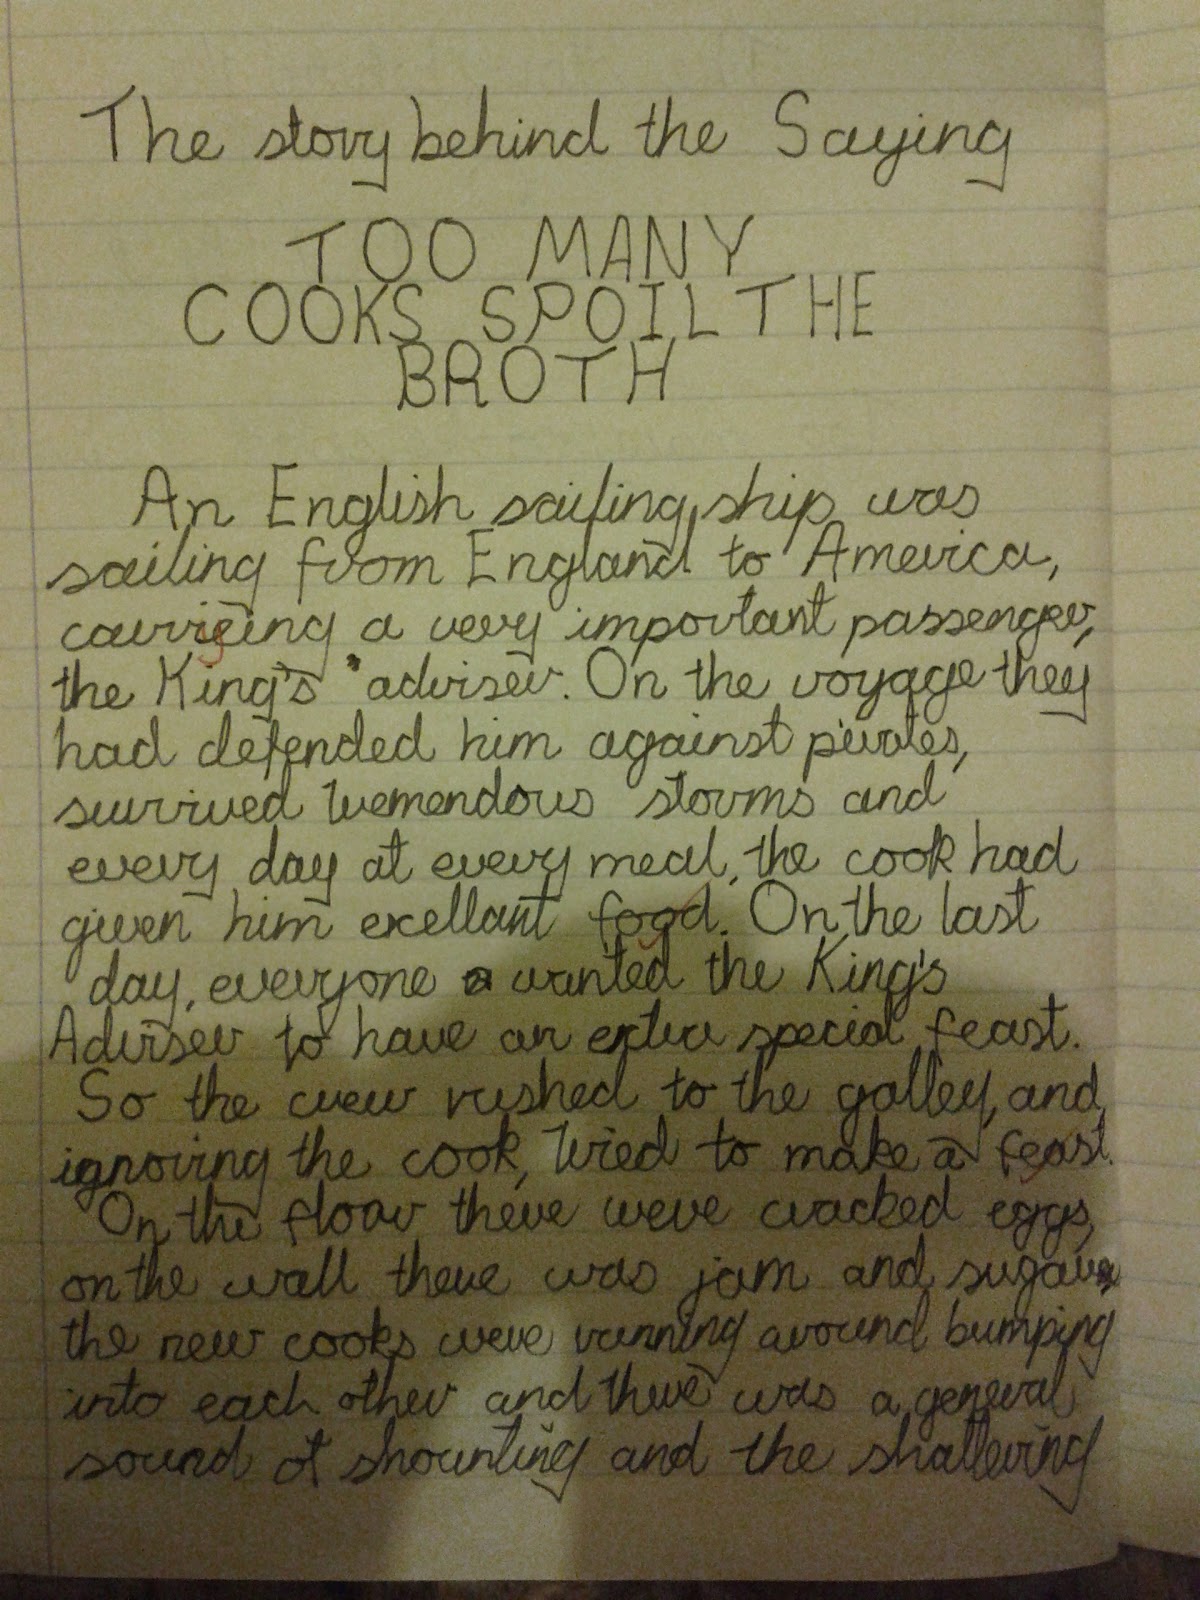 The story behind the Saying
TOO MANY
COOKS SPOIL THE
BROTH
An English sailing ship was
sailing from England to America,
carrieing a very important passenger,
the King's adviser. On the voyage they
had defended him against pirates,
survived tremendous storms and
every day at every meal, the cook had
given him excellant food. On the last
day, everyone wanted the King's
Adviser to have an extra special feast.
So the crew rushed to the galley, and,
ignoring the cook, tried to make a feast.
On the floor there were cracked eggs,
on the wall there was jam and sugar,
the new cooks were running around bumping
into each other and there was a general
sound of shounting and the shattering